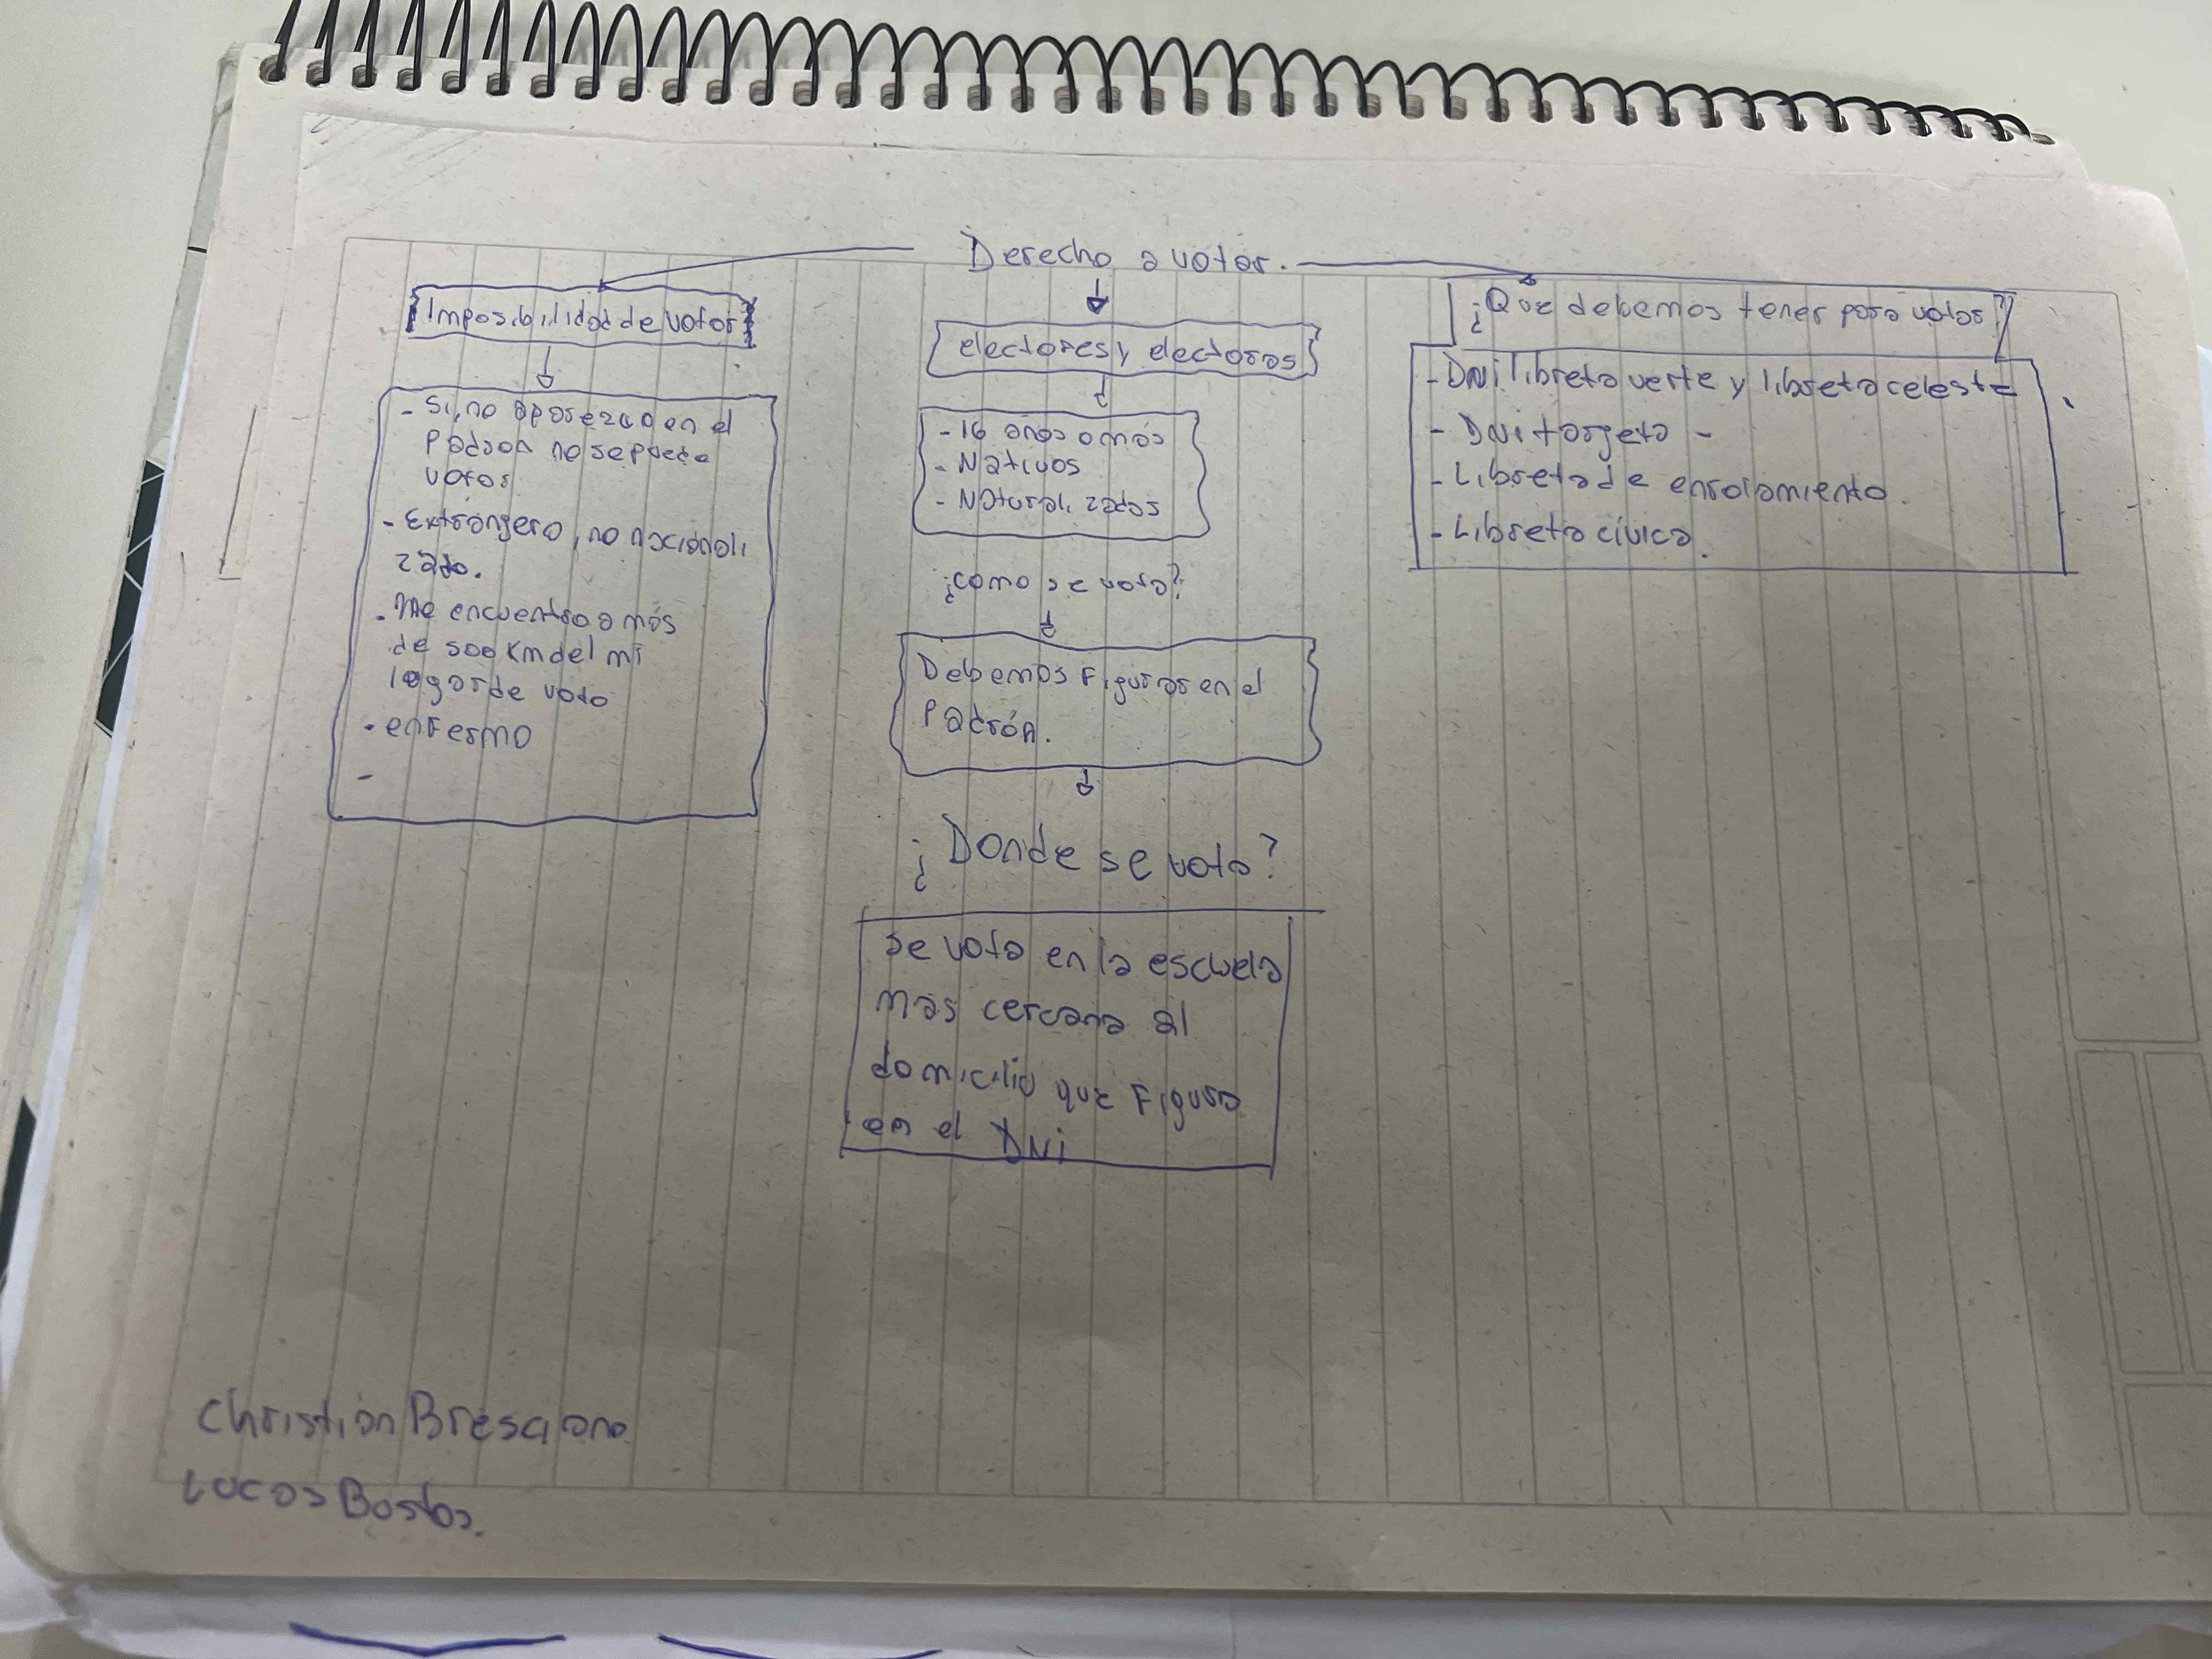 Derecho a votar.
Imposibilidad de votar
- Si, no aparezco en el
Padron no se puede
votar.
- Extrangero, no nacionali
zado.
- Me encuentro a más
de 500 Km del mi
lugar de voto
- enfermo
-
electores y electoras
- 16 años o más
- Nativos
- Naturalizados
¿como se vota?
Debemos Figurar en el
Padrón.
¿Donde se vota?
se vota en la escuela
mas cercana al
domicilio que Figura
en el DNi
¿Que debemos tener para votar?
- DNi libreta verte y libreta celeste
- DNi targeta -
- Libreta de enrolamiento.
- Libreta cívica.
Christian Bresciano
Lucas Bastos.